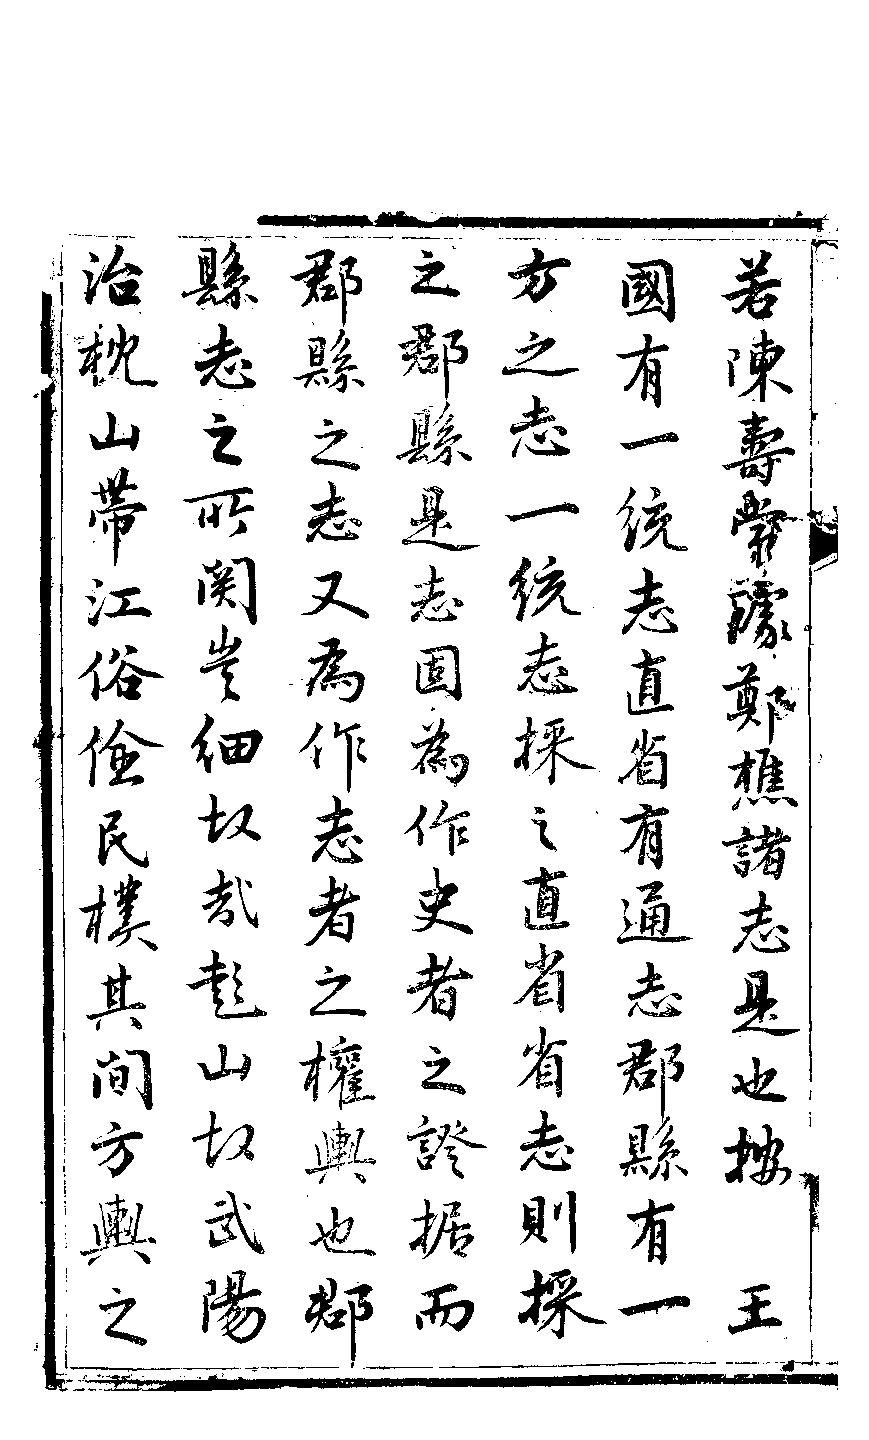 若陳壽璩鄭樵諸志是也按　王
國有一統志直省有通志郡縣有一
方之志一統志採之直省省志則採
之郡縣是志固為作史者之證据而
郡縣之志又為作志者之權輿也郡
縣志之所関豈細故哉彭山故武陽
治枕山帶江俗儉民樸其間方輿之